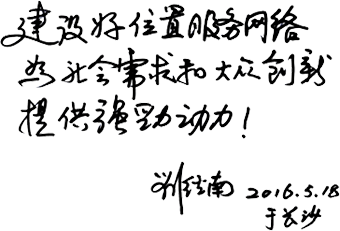 建设好位置服务网络
为社会需求和大众创新
提供强劲动力！
刘经南 2016.5.18
于长沙